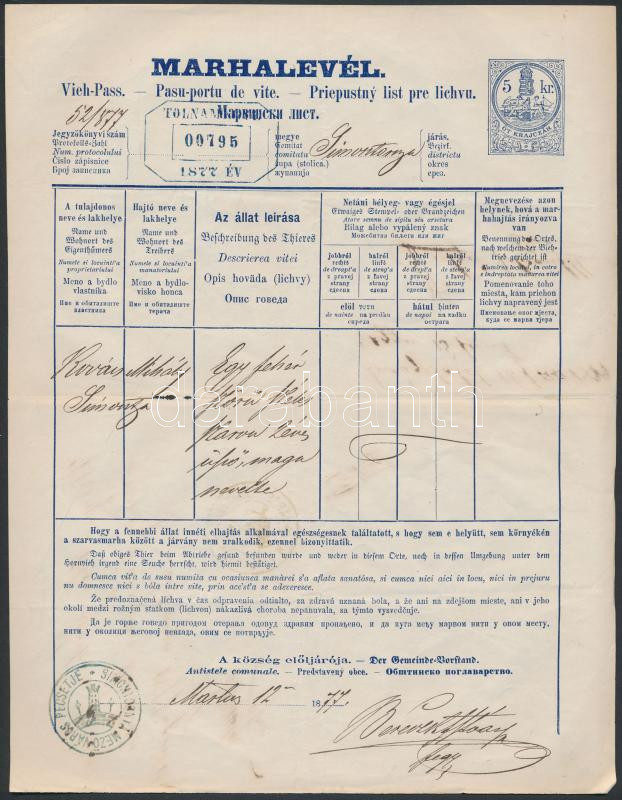 MARHALEVÉL.
Vieh-Pass. — Pasu-portu de vite. — Priepustný list pre lichvu.
Марвински лист.
5 kr.
ÖT KRAJCZÁR
52/877
TOLNAM
00795
1877 ÉV
Jegyzőkönyvi szám
Protokolls-Zahl
Num. protocolului
Čislo zápisnice
Број записника
megye
Comitat
comitatu
župa (stolica.)
жупанија
Simontornya
járás.
Bezirk.
districtu
okres
срез.
A tulajdonos neve és lakhelye
Name und Wohnort des Eigenthümers
Numele si locuint'a proprietariului
Meno a bydlo vlastníka
Име и обиталиште властника
Hajtó neve és lakhelye
Name und Wohnort des Treibers
Numele si locuint'a manatoriului
Meno a bydlo-visko honca
Име и обиталиште терача
Az állat leírása
Beschreibung des Thieres
Descrierea vitei
Opis hoväda (lichvy)
Опис говеда
Netáni bélyeg- vagy égésjel
Etwaiges Stempel- oder Brandzeichen
Atare semnu de sigilu séu arsetura
Bilag alebo vypálený znak
Можебитна билега или жиг
jobbról rechts de dreapt'a z pravej strany одесна
balról links de steng'a z ľavej strany слева
jobbról rechts de dreapt'a z pravej strany одесна
balról links de steng'a z ľavej strany слева
elöl vorn
de nainte na predku
спреда
hátul hinten
de napoi na zadku
острага
Megnevezése azon helynek, hová a mar-
hahajtás irányozva van
Benennung des Ortes, nach welchem der Vieh-
trieb gerichtet ist
Pomenovanie toho miesta, kam priehon lichvy napravený jest
Kovács
Simontor
Mihály
Egy fehér
szőrű
éves
üsző, maga
nevelte
darabanth
Hogy a fennebbi állat innéti elhajtás alkalmával egészségesnek találtatott, s hogy sem e helyütt, sem környékén
a szarvasmarha között a járvány nem uralkodik, ezennel bizonyíttatik.
Daß obiges Thier beim Abtriebe gesund befunden wurde und weder in diesem Orte, noch in dessen Umgebung unter dem
Hornvieh irgend eine Seuche herrscht, wird hiemit bestätiget.
Cumca vit'a de susu numita cu ocasiunea manarei s'a aflata sanatósa, si cumca nici aici in locu, nici in prejuru
nu domnesce nici s bóla intre vite, prin acést'a se adeveresce.
Že predoznačená lichva v čas odpravenia odtialto, za zdravú uznaná bola, a že ani na zdejšom mieste, ani v jeho
okolí medzi rožným statkom (lichvou) nákazlivá choroba nepanuvala, sa týmto vysvedčuje.
Да је горње говедо пригодом отерања одовуд здравим пронађено, и да куга међу марвом нити у овом месту,
нити у околици његовој невлада, овим се потврђује.
A község elöljárója. — Der Gemeinde-Vorstand.
Antistele comunale. — Predstavený obce. — Општинско поглаварство.
Martius 12 1877.
SIMONTORNYA MEZŐVÁROS PECSÉTJE